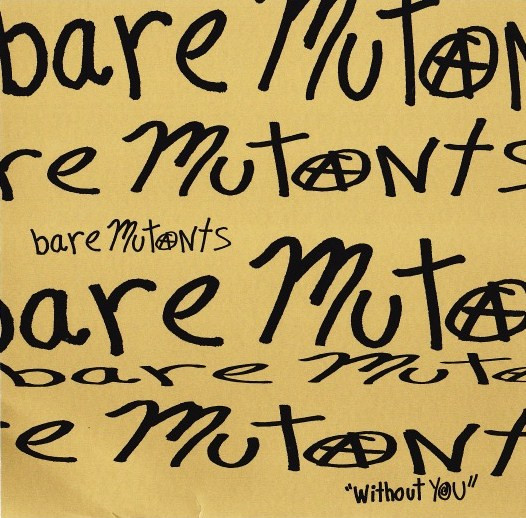 bare MUTAN
re MUTANTS
bare MUTANTS
bare MUTA
bare MUTA
e MUTANT
"Without YOU"